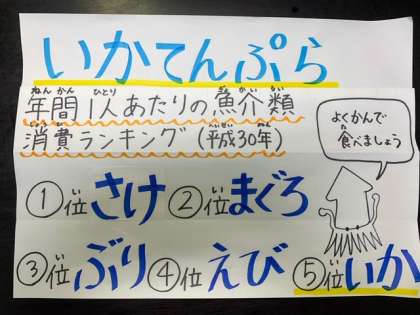 いかてんぷら
ねんかん ひとり ぎょかい るい
年間1人あたりの魚介類
しょうひ へいせい ねん
消費ランキング(平成30年)
よくかんで
た
食べましょう
い い
①位さけ ②位まぐろ
い い い
③位ぶり ④位えび ⑤位いか